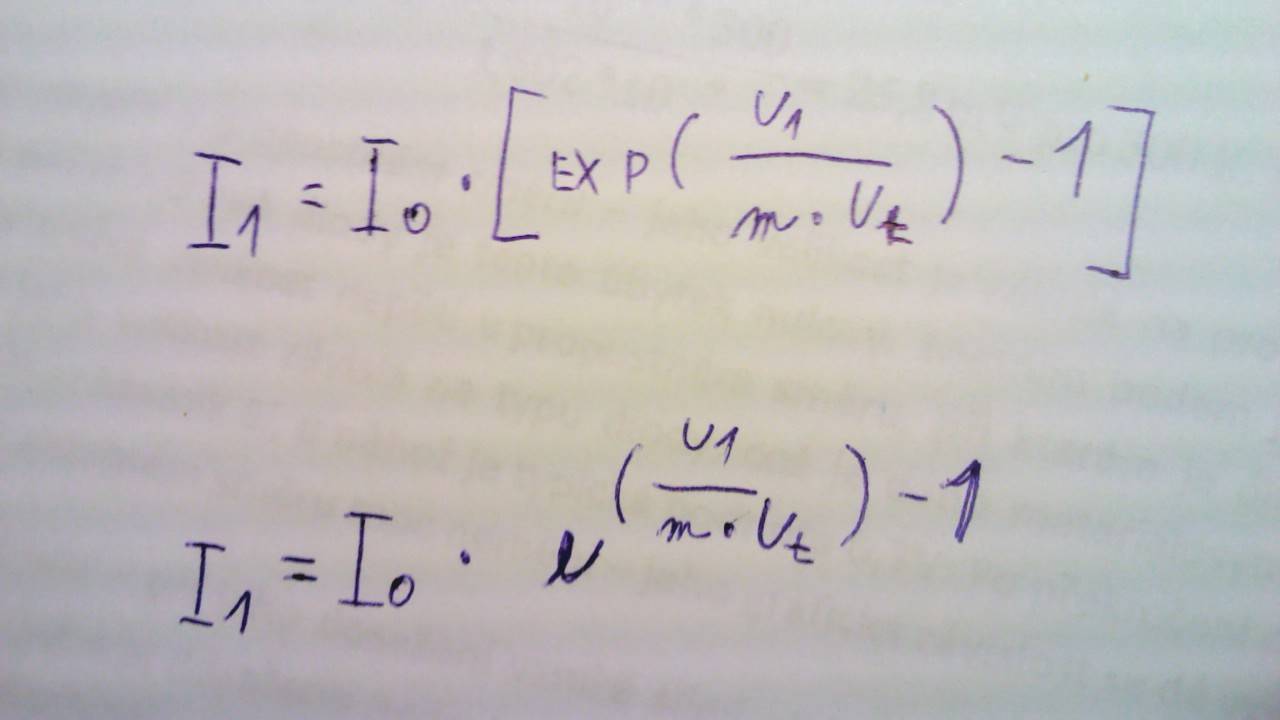 I₁ = I₀ · [EXP(U₁ / (m · Uₜ)) - 1]
I₁ = I₀ · e^((U1 / (m · Uₜ)) - 1)